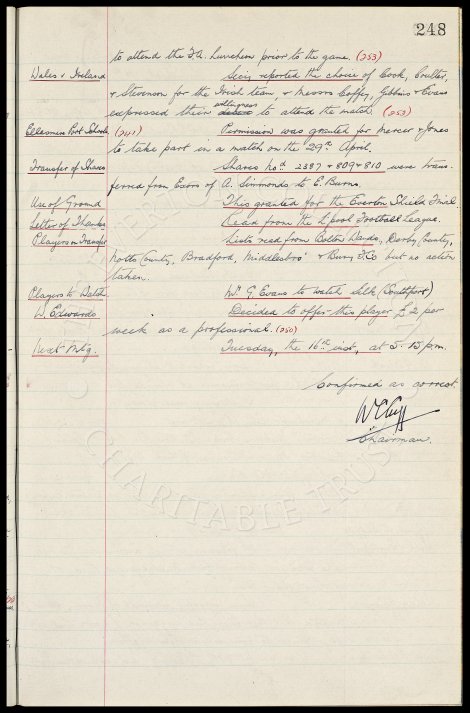 248
to attend the F.A. Luncheon prior to the game. (253)
Wales v Ireland Secy. reported the choice of Cook, Coulter,
& Stevenson for the Irish team & Messrs Coffey, Gibbins & Evans
expressed their willingness to attend the match. (253)
Ellesmere Port Schools (241) Permission was granted for Mercer & Jones
to take part in a match on the 29th April.
Transfer of Shares Shares nos. 2387 & 809 & 810 were trans-
ferred from Exors of A. Simmonds to E. Burns.
Use of Ground This granted for the Everton Shield Final
Letter of Thanks Read from the L'pool Football League.
Players on Transfer Lists read from Bolton Wands, Derby County,
Notts County, Bradford, Middlesbro' & Bury F.Cs but no action
taken.
Players to Watch Mr G. Evans to watch Silk (Southport)
W. Edwards Decided to offer this player £2 per
week as a professional. (250)
Next Mtg. Tuesday, the 16th inst, at 5.15 p.m.
Confirmed as correct.
W C Cuff
Chairman.
CHARITABLE TRUST